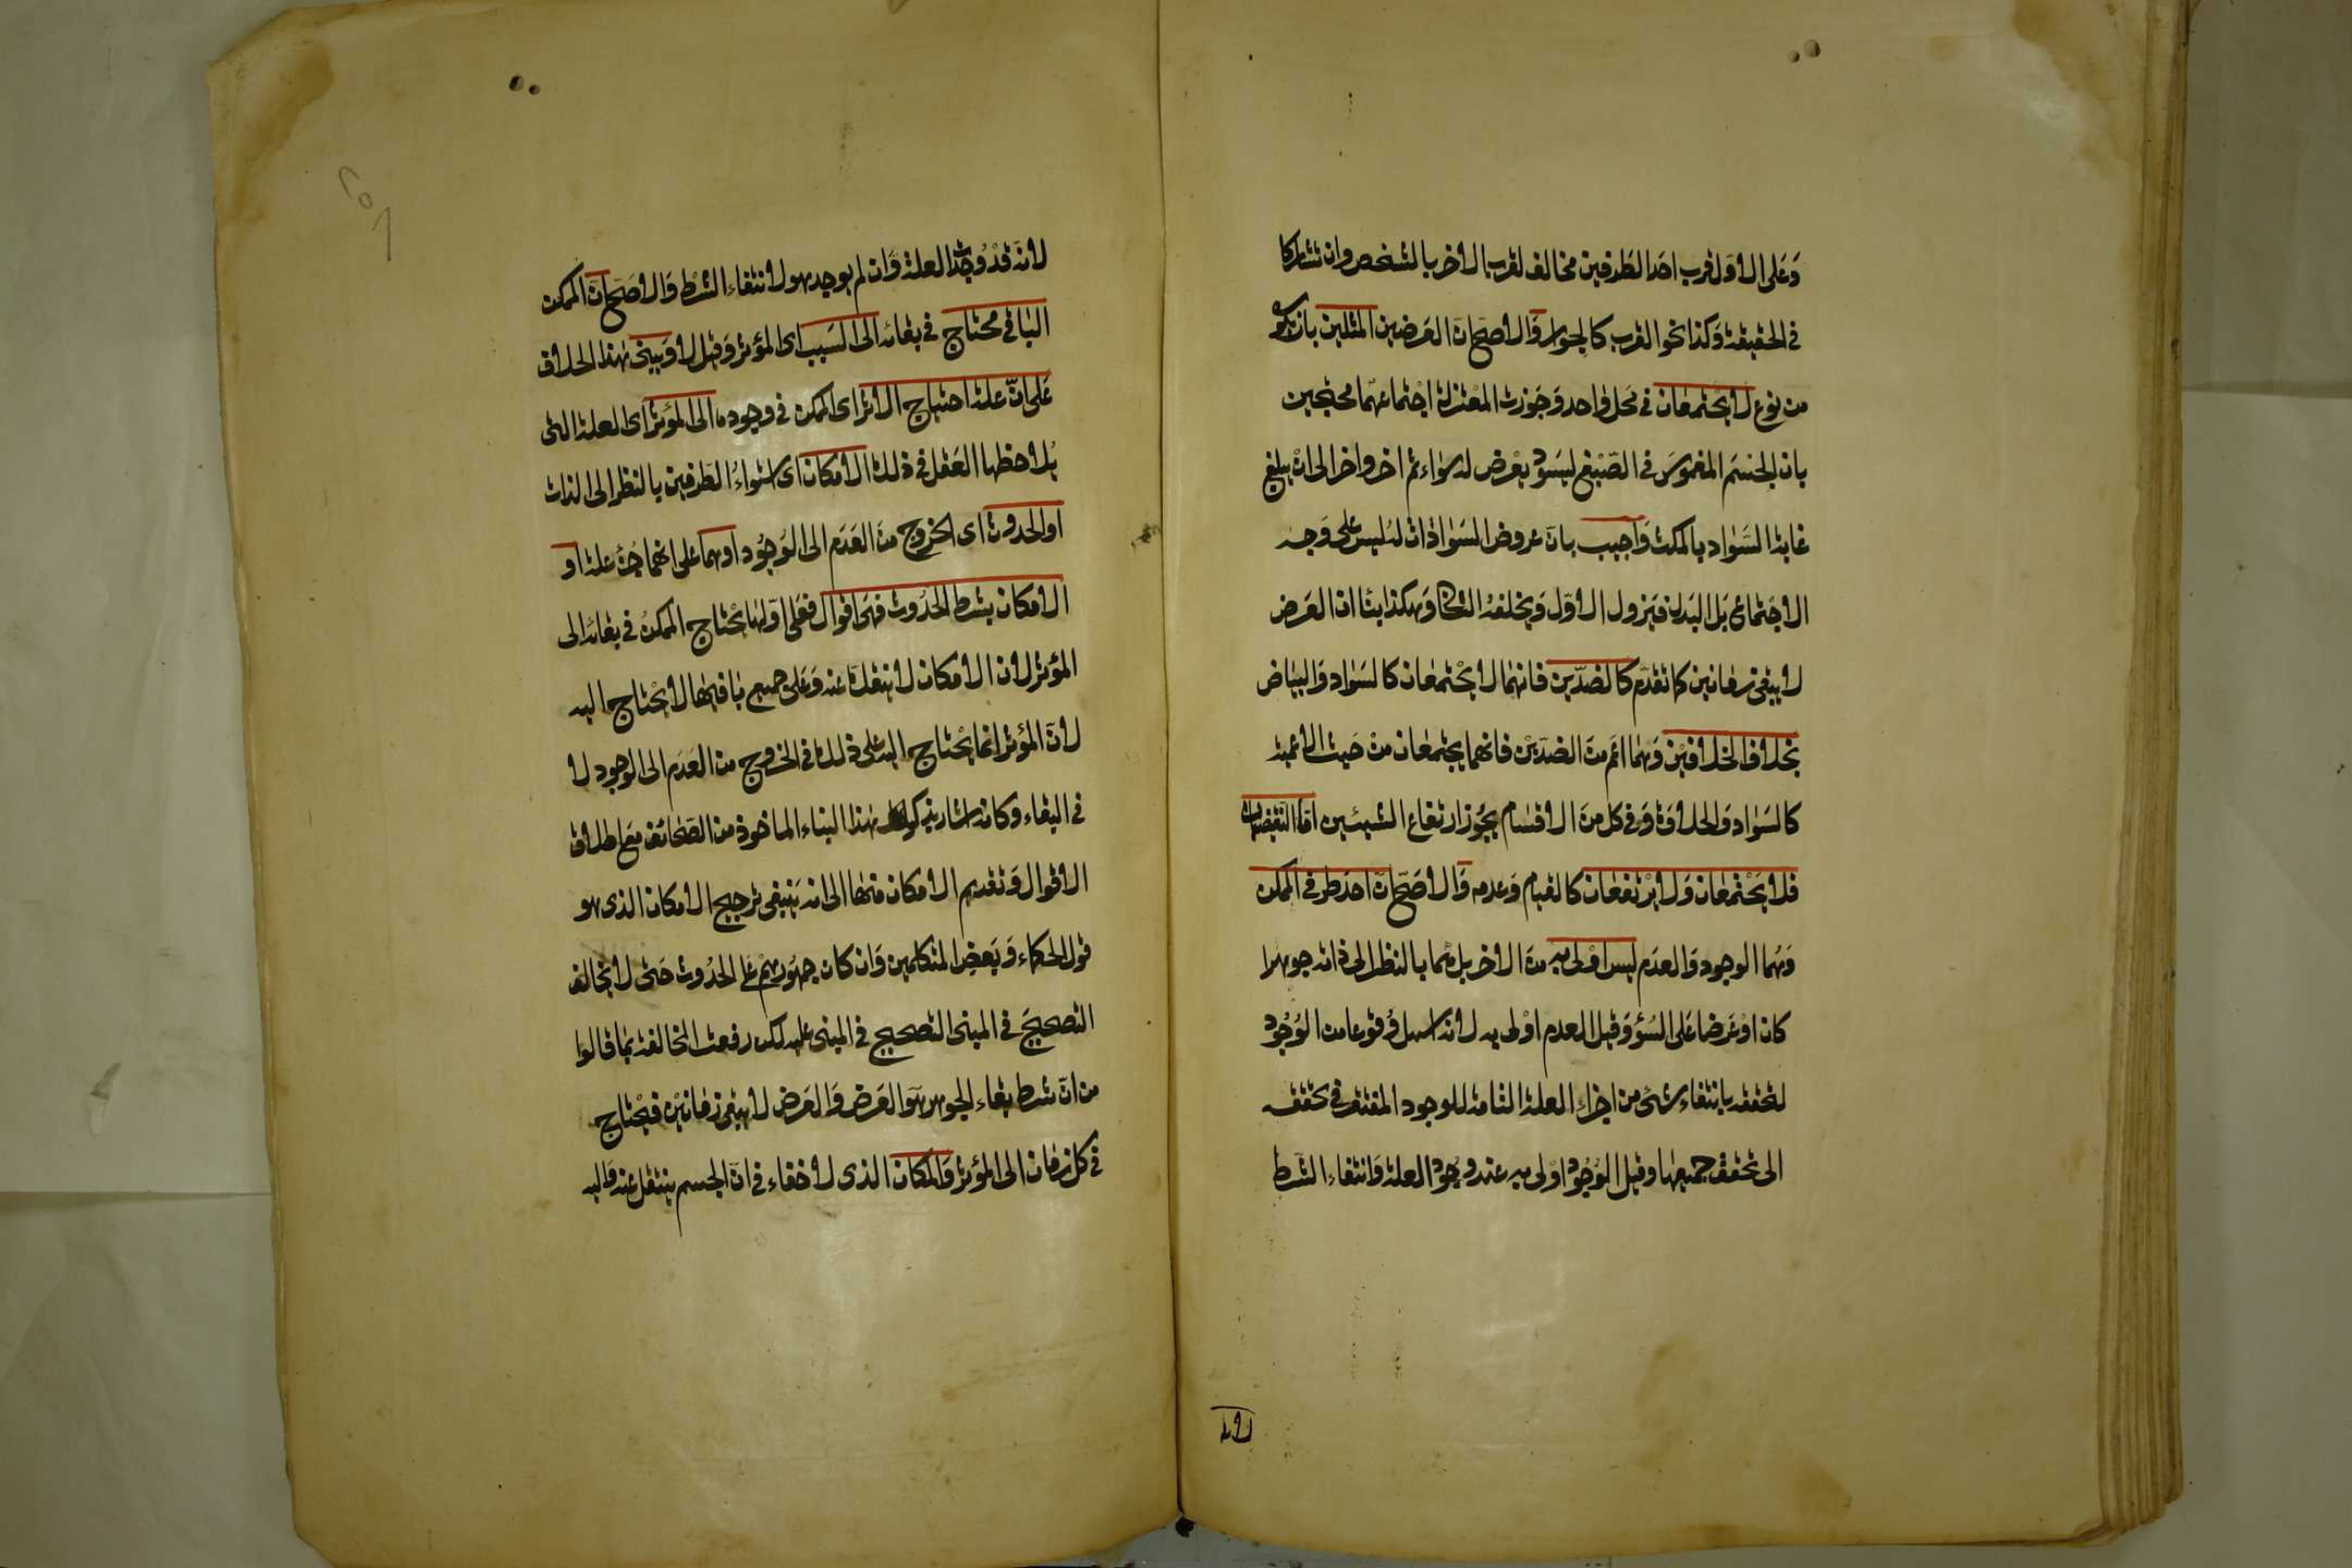 وَعَلى الاوّل قرب احد الطرفين مخالف لقرب الاخر بالشخص وان تشاركا
في الحقيقة وكذا نحو القرب كالجوار وَالاصحّ انّ العرضين المثلين بان يكونا
من نوع لا يجتمعان في محل واحد وَجوزت المعتزلة اجتماعهما محتجين
بان الجسم المغموسَ في الصّبْغ ليسودّ يعْرض له سواد ثم اخر واخر الى ان يبلغ
غاية السَّواد بالمكث وَاجيب بانّ عروض السوادات له ليس على وَجه
الاجتماع بَل البدل فيزول الاوّل وَيخلفه الثاني وهكذا بناء ان العرض
لا يبقى زمانين كما تقدّم كالضدّين فانهما لا يجتمعان كالسَواد وَالبياض
بخلاف الخلافين وَهما اعَم منَ الضدّيْن فانهما يجتمعان منْ حَيث الاعمية
كالسَواد وَالحلاوَة وَفي كل منَ الاقسام يجُوز ارتفاع الشيئين امّا النقيضان
فلا يَجْتمعَان وَلا يرْتفعَان كالقيام وَعدمه وَالاصَحّ انّ احد طرفي الممكن
وَهُما الوجود وَالعدَم ليس اوْلى به منَ الاخر بل هُما بالنظر الى ذاته جوهرا
كان اوْ عَرضا عَلى السّوَٓ وَقيل العدم اوْلى به لانه اسهل وُقوعا من الوُجُود
لتحققه بانتفاء شئ من اجزاء العلة التامة للوجود المفتقر في تحققه
الى تحقق جميعها وقيل الوُجُود اوْلى به عند وجوُد العلة وَانتفاء الشّرط
لانه
لانه قدْ وُجدت العلة وَان لم يوجد هو لانتفاء الشرط وَالاصَحّ انّ الممكن
الباقي محتاج في بقائه الى السَبب اى المؤثر وَقيل لا وَينبني هٰذا الخلاف
عَلى انّ علة احتياج الاثر اى الممكن في وجوده الى المؤثر اى العلة التي
يُلاحظها العَقل في ذلك الامكان اى استواءُ الطرفين بالنظر الى الذات
اوالحدوث اى الخروج منَ العَدَم الى الوُجُود اوهما على انهما جُزءٓ علة او
الامكان بشرط الحدُوث فهي اقوال فعَلى اوّلها يحْتاج الممكنُ في بقائه الى
المؤثر لان الامكان لا ينفكّ عنه وَعَلى جميع باقيهَا لا يحْتاج اليه
لانّ المؤثر انما يحْتاج اليه على ذلك في الخروج من العَدَم الى الوجود لا
في البقاء وكانه اشار بذكر هٰذا البناء الماخوذ من الصّحَائف مَع اطلاق
الاقوال وَتقديم الامكان منهَا الى انه يَنبغي ترجيح الامكان الذي هو
قول الحكماء وَبعَض المتكلمين وَان كان جمهُورهم عَلى الحدُوث حَتى لا يخالف
التصحيحَ في المبنى التصحيح في المبني عليه لكن دفعت المخالفة بمَا قالوا
من انّ شرط بقاء الجوهر هوَ العَرَض وَالعَرَض لا يبقى زمَانيْن فيحْتاج
في كل زمَان الى المؤثر وَالمكان الذي لا خفاء في انّ الجسم ينتقل عنه وَاليه